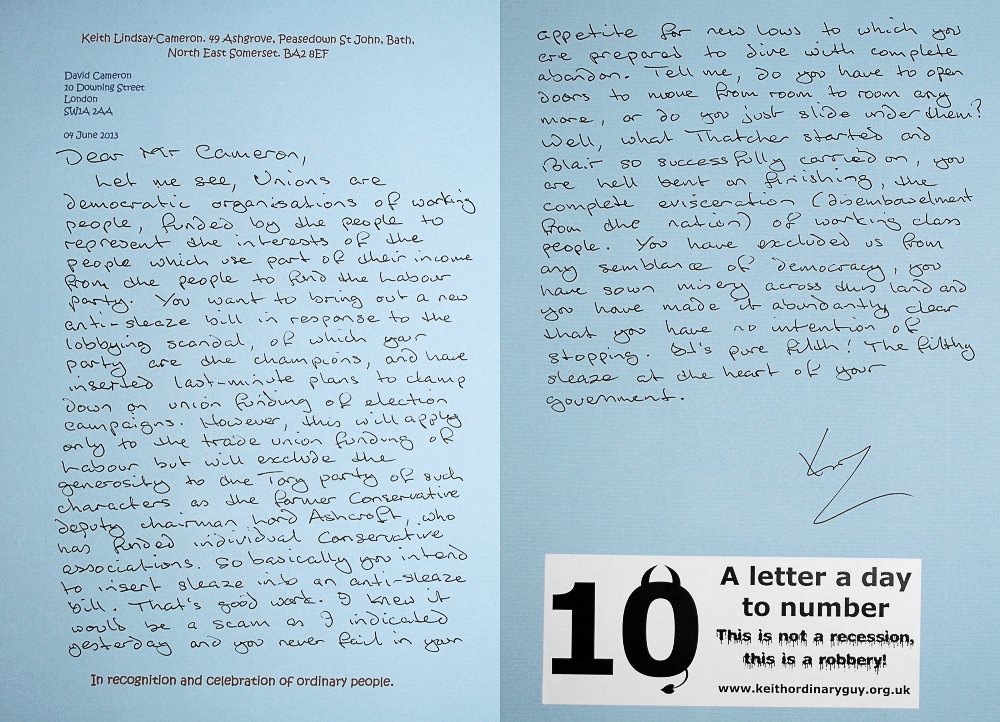 Keith Lindsay-Cameron. 49 Ashgrove, Peasedown St John, Bath,
North East Somerset. BA2 8EF
David Cameron
10 Downing Street
London
SW1A 2AA
04 June 2013
Dear Mr Cameron,
Let me see, Unions are
democratic organisations of working
people, funded by the people to
represent the interests of the
people which use part of their income
from the people to fund the Labour
party. You want to bring out a new
anti-sleaze bill in response to the
lobbying scandal, of which your
party are the champions, and have
inserted last-minute plans to clamp
down on union funding of election
campaigns. However, this will apply
only to the trade union funding of
Labour but will exclude the
generosity to the Tory party of such
characters as the former Conservative
deputy chairman Lord Ashcroft, who
has funded individual Conservative
associations. So basically you intend
to insert sleaze into an anti-sleaze
bill. That's good work. I knew it
would be a scam as I indicated
yesterday and you never fail in your
In recognition and celebration of ordinary people.
appetite for new lows to which you
are prepared to dive with complete
abandon. Tell me, do you have to open
doors to move from room to room any
more, or do you just slide under them?
Well, what Thatcher started and
Blair so successfully carried on, you
are hell bent on finishing, the
complete evisceration (disembowelment
from the nation) of working class
people. You have excluded us from
any semblance of democracy, you
have sown misery across this land and
you have made it abundantly clear
that you have no intention of
stopping. It's pure filth! The filthy
sleaze at the heart of your
government.
10
A letter a day
to number
This is not a recession,
this is a robbery!
www.keithordinaryguy.org.uk